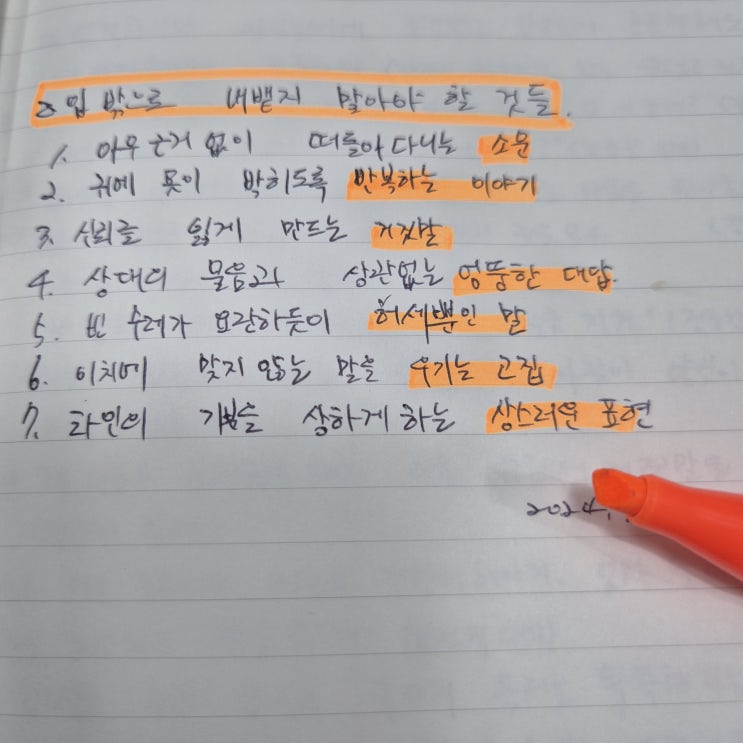 입 밖으로 내뱉지 말아야 할 것들.
1. 아무 근거 없이 떠돌아 다니는 소문
2. 귀에 못이 박히도록 반복하는 이야기
3. 신뢰를 잃게 만드는 거짓말
4. 상대의 물음과 상관없는 엉뚱한 대답.
5. 빈 수레가 요란하듯이 허세뿐인 말
6. 이치에 맞지 않는 말을 우기는 고집
7. 타인의 기분을 상하게 하는 상스러운 표현
2024.